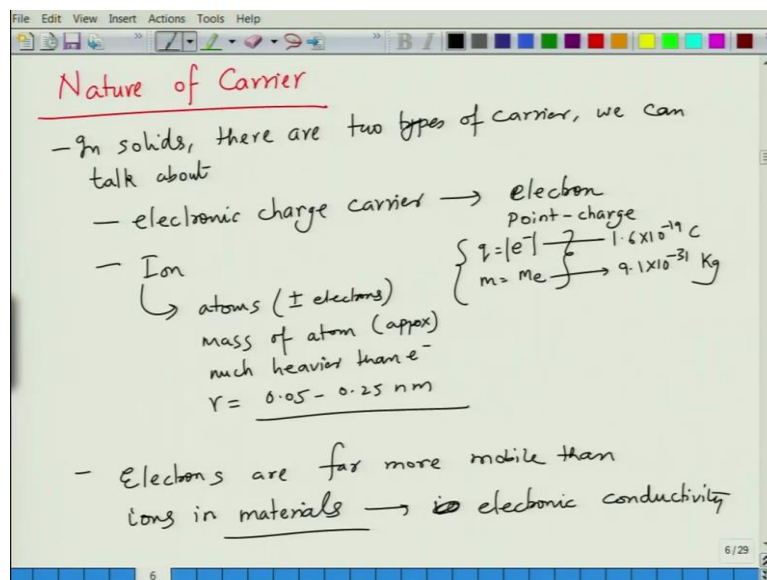 File Edit View Insert Actions Tools Help
Nature of Carrier
- In solids, there are two types of carrier, we can
talk about
- electronic charge carrier → electron
point-charge
q = |e⁻| → 1.6×10⁻¹⁹ C
m = me → 9.1×10⁻³¹ Kg
- Ion
atoms (± electrons)
mass of atom (appox)
much heavier than e⁻
r = 0.05 - 0.25 nm
- Electrons are far more mobile than
ions in materials → electronic conductivity
6/29
6